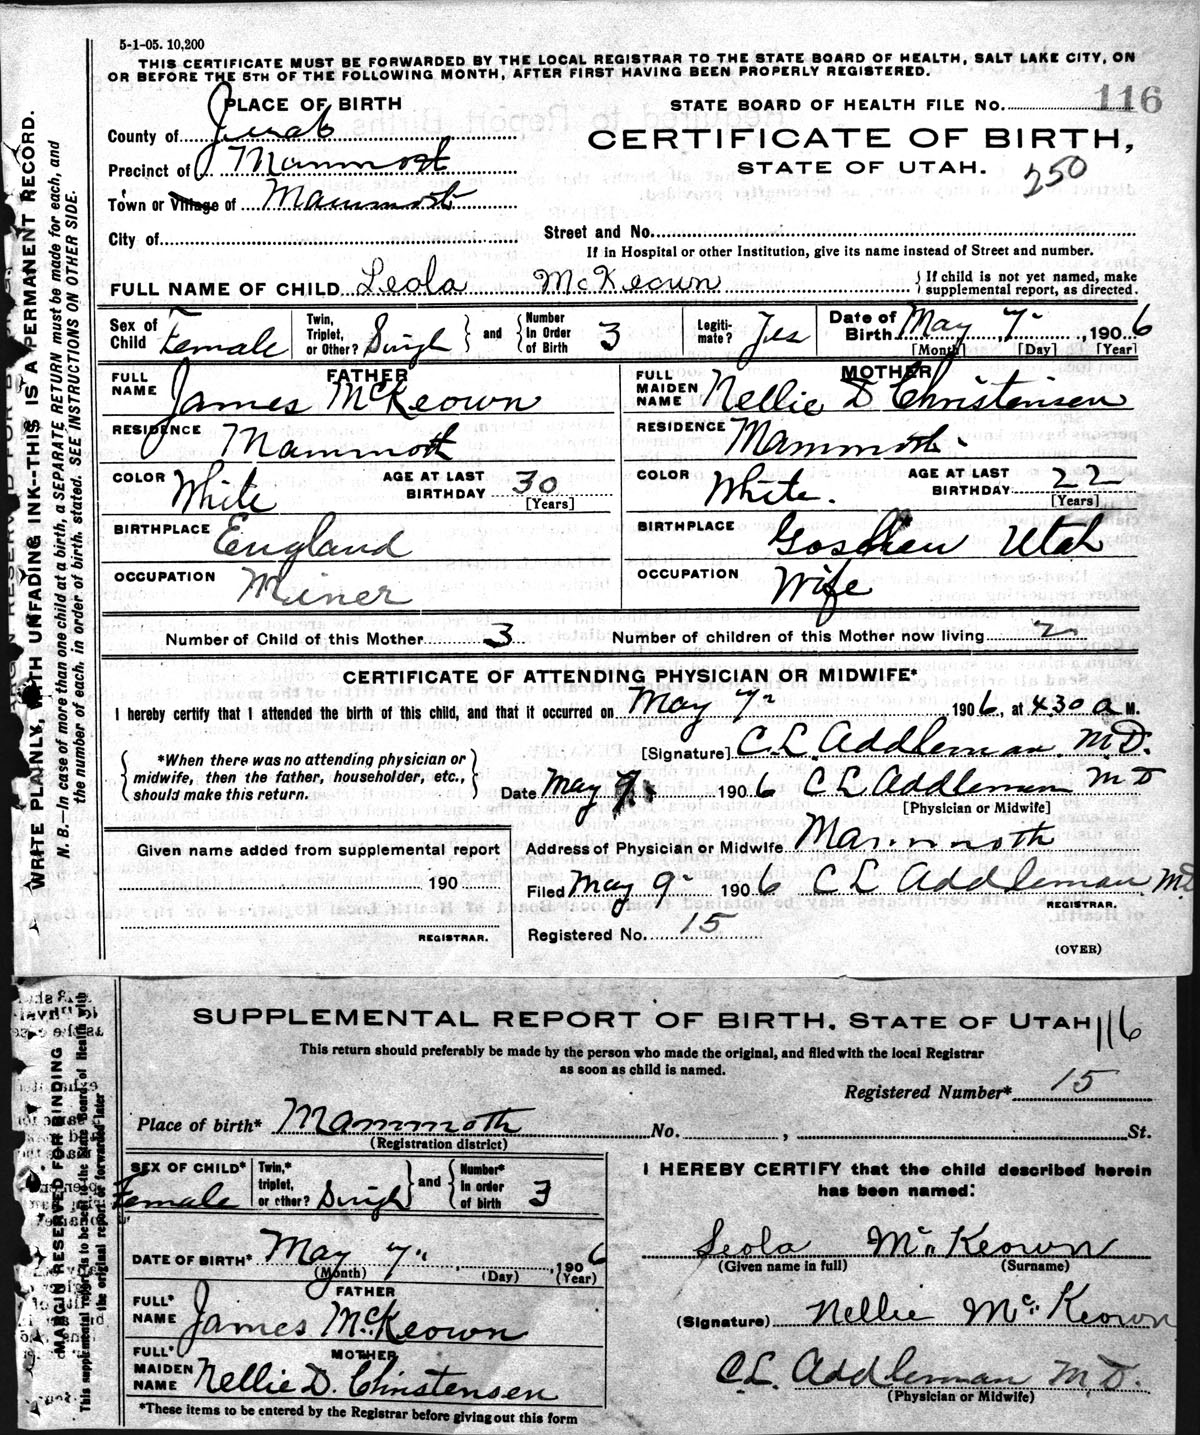 5-1-05. 10,200
THIS CERTIFICATE MUST BE FORWARDED BY THE LOCAL REGISTRAR TO THE STATE BOARD OF HEALTH, SALT LAKE CITY, ON
OR BEFORE THE 5TH OF THE FOLLOWING MONTH, AFTER FIRST HAVING BEEN PROPERLY REGISTERED.
PLACE OF BIRTH
STATE BOARD OF HEALTH FILE No. 116
County of Juab
CERTIFICATE OF BIRTH,
Precinct of Mammoth
STATE OF UTAH.
250
Town or Village of Mammoth
City of
Street and No.
If in Hospital or other Institution, give its name instead of Street and number.
FULL NAME OF CHILD Leola McKeown
{If child is not yet named, make
supplemental report, as directed.
Sex of Child Female
Twin, Triplet, or Other? Singl } and { Number In Order of Birth 3
Legiti-mate? Yes
Date of Birth May 7", 1906
[Month] [Day] [Year]
FATHER
FULL NAME James McKeown
RESIDENCE Mammoth
COLOR White AGE AT LAST BIRTHDAY 30 [Years]
BIRTHPLACE England
OCCUPATION Miner
MOTHER
FULL MAIDEN NAME Nellie D Christensen
RESIDENCE Mammoth.
COLOR White. AGE AT LAST BIRTHDAY 22 [Years]
BIRTHPLACE Goshen Utah
OCCUPATION Wife
Number of Child of this Mother 3 Number of children of this Mother now living 2
CERTIFICATE OF ATTENDING PHYSICIAN OR MIDWIFE*
I hereby certify that I attended the birth of this child, and that it occurred on May 7" 1906, at 4 30 a M.
[Signature] C. L. Addleman M.D.
{*When there was no attending physician or
midwife, then the father, householder, etc.,
should make this return.}
Date May 9 1906 C L Addleman M D
[Physician or Midwife]
Given name added from supplemental report
190
REGISTRAR.
Address of Physician or Midwife Mammoth
Filed May 9" 1906 C L Addleman M.D
REGISTRAR.
Registered No. 15
(OVER)
WRITE PLAINLY, WITH UNFADING INK--THIS IS A PERMANENT RECORD.
N. B.—In case of more than one child at a birth, a SEPARATE RETURN must be made for each, and
the number of each, in order of birth, stated. SEE INSTRUCTIONS ON OTHER SIDE.
SUPPLEMENTAL REPORT OF BIRTH. STATE OF UTAH 116
This return should preferably be made by the person who made the original, and filed with the local Registrar
as soon as child is named.
Registered Number* 15
Place of birth* Mammoth No. , St.
(Registration district)
SEX OF CHILD* Female
Twin,* triplet, or other? Singl } and { Number* in order of birth 3
DATE OF BIRTH* May 7", 1906
(Month) (Day) (Year)
FATHER
FULL* NAME James McKeown
MOTHER
FULL* MAIDEN NAME Nellie D. Christensen
*These items to be entered by the Registrar before giving out this form
I HEREBY CERTIFY that the child described herein
has been named:
Leola McKeown
(Given name in full) (Surname)
(Signature) Nellie McKeown
C.L. Addleman M.D.
(Physician or Midwife)
MARGIN RESERVED FOR BINDING
This supplemental report is to be sent to the State Board of Health with
the original report or forwarded later